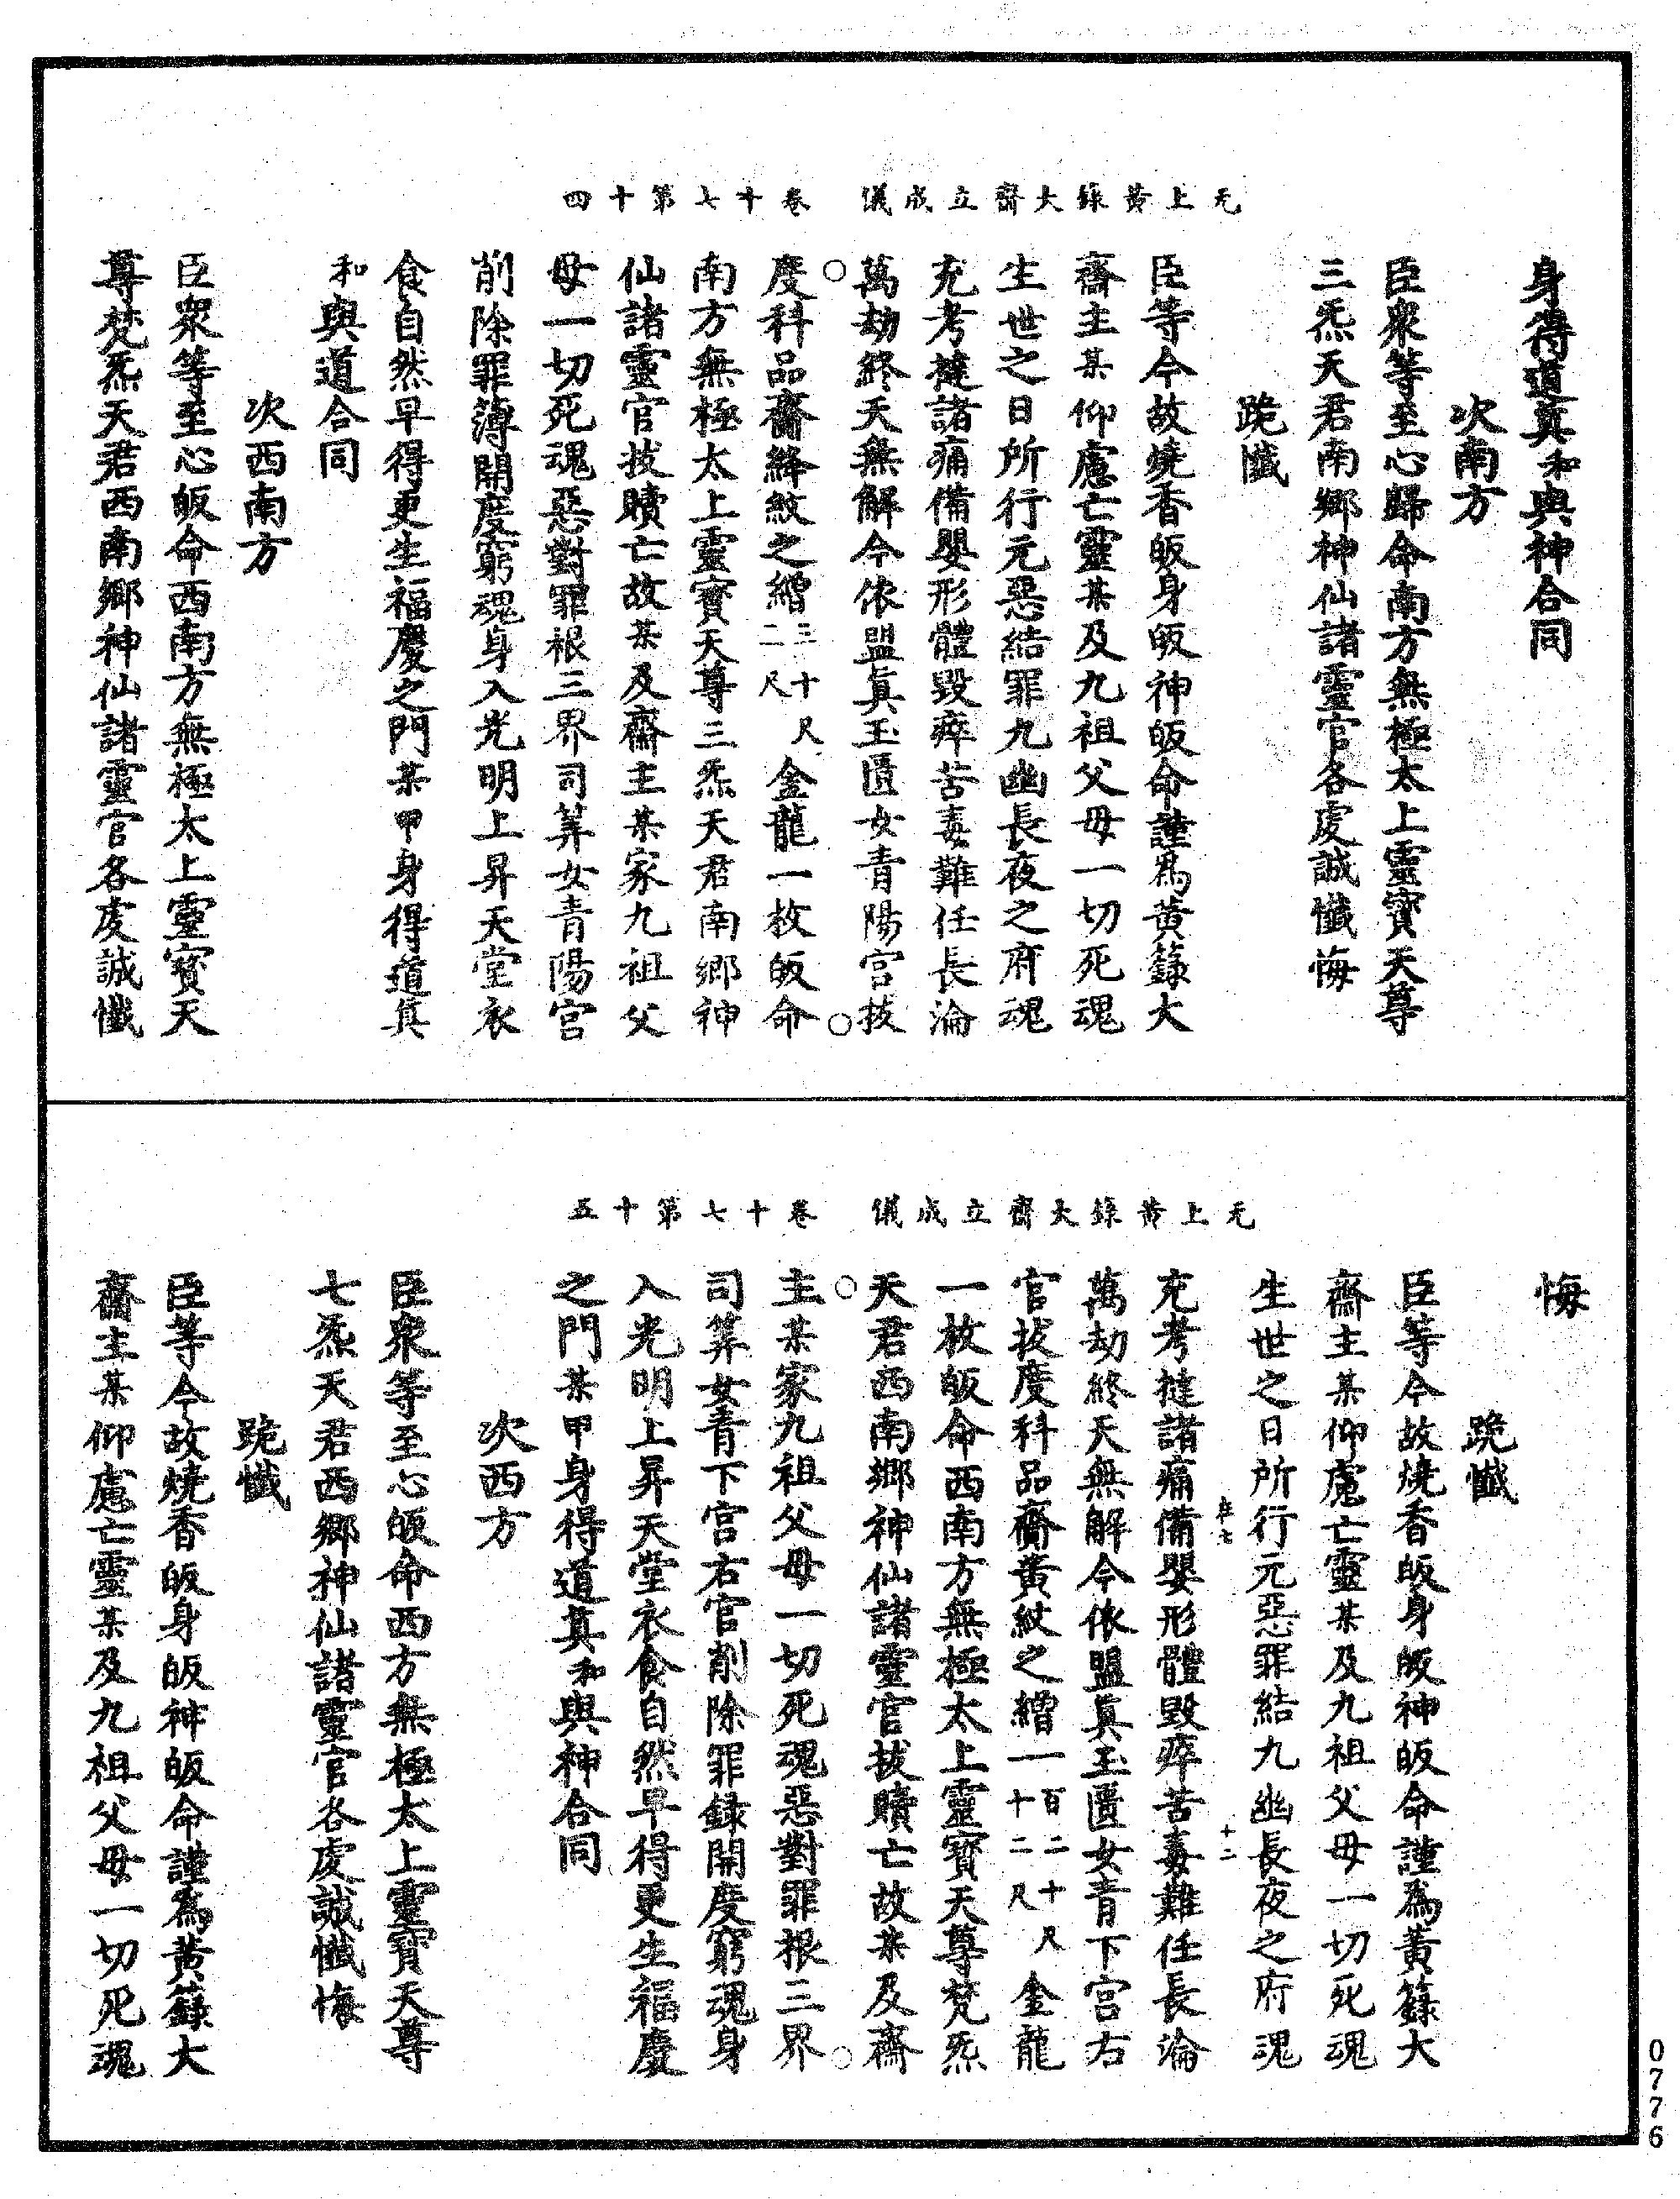 无上黃籙大齋立成儀　卷十七第十四
身得道真和與神合同
次南方
臣衆等至心歸命南方無極太上靈寳天尊
三炁天君南鄉神仙諸靈官各䖍誠懺悔
跪懺
臣等今故燒香皈身皈神皈命謹爲黃籙大
齋主某仰慮亡靈某及九祖父母一切死魂
生世之日所行元惡結罪九幽長夜之府魂
充考撻諸痛備嬰形體毀瘁苦毒難任長淪
萬劫終天無解今依盟真玉匱女青陽宮拔
度科品齋絳紋之繒三十尺二尺金龍一枚皈命
南方無極太上靈寳天尊三炁天君南鄉神
仙諸靈官拔贖亡故某及齋主某家九祖父
母一切死魂惡對罪根三界司筭女青陽宮
削除罪簿開度窮魂身入光明上昇天堂衣
食自然早得更生福慶之門某甲身得道真
和與道合同
次西南方
臣衆等至心皈命西南方無極太上靈寳天
尊梵炁天君西南鄉神仙諸靈官各䖍誠懺
无上黃籙大齋立成儀　卷十七第十五
悔
跪懺
臣等今故燒香皈身皈神皈命謹爲黃籙大
齋主某仰慮亡靈某及九祖父母一切死魂
生世之日所行元惡罪結九幽長夜之府魂
十二
充考撻諸痛備嬰形體毀瘁苦毒難任長淪
萬劫終天無解今依盟真玉匱女青下宮右
官拔度科品齋黃紋之繒一百二十尺一十二尺金龍
一枚皈命西南方無極太上靈寳天尊梵炁
天君西南鄉神仙諸靈官拔贖亡故某及齋
主某家九祖父母一切死魂惡對罪根三界
司筭女青下宮右官削除罪録開度窮魂身
入光明上昇天堂衣食自然早得更生福慶
之門某甲身得道真和與神合同
次西方
臣衆等至心皈命西方無極太上靈寳天尊
七炁天君西鄉神仙諸靈官各䖍誠懺悔
跪懺
臣等今故燒香皈身皈神皈命謹爲黃籙大
齋主某仰慮亡靈某及九祖父母一切死魂
0776